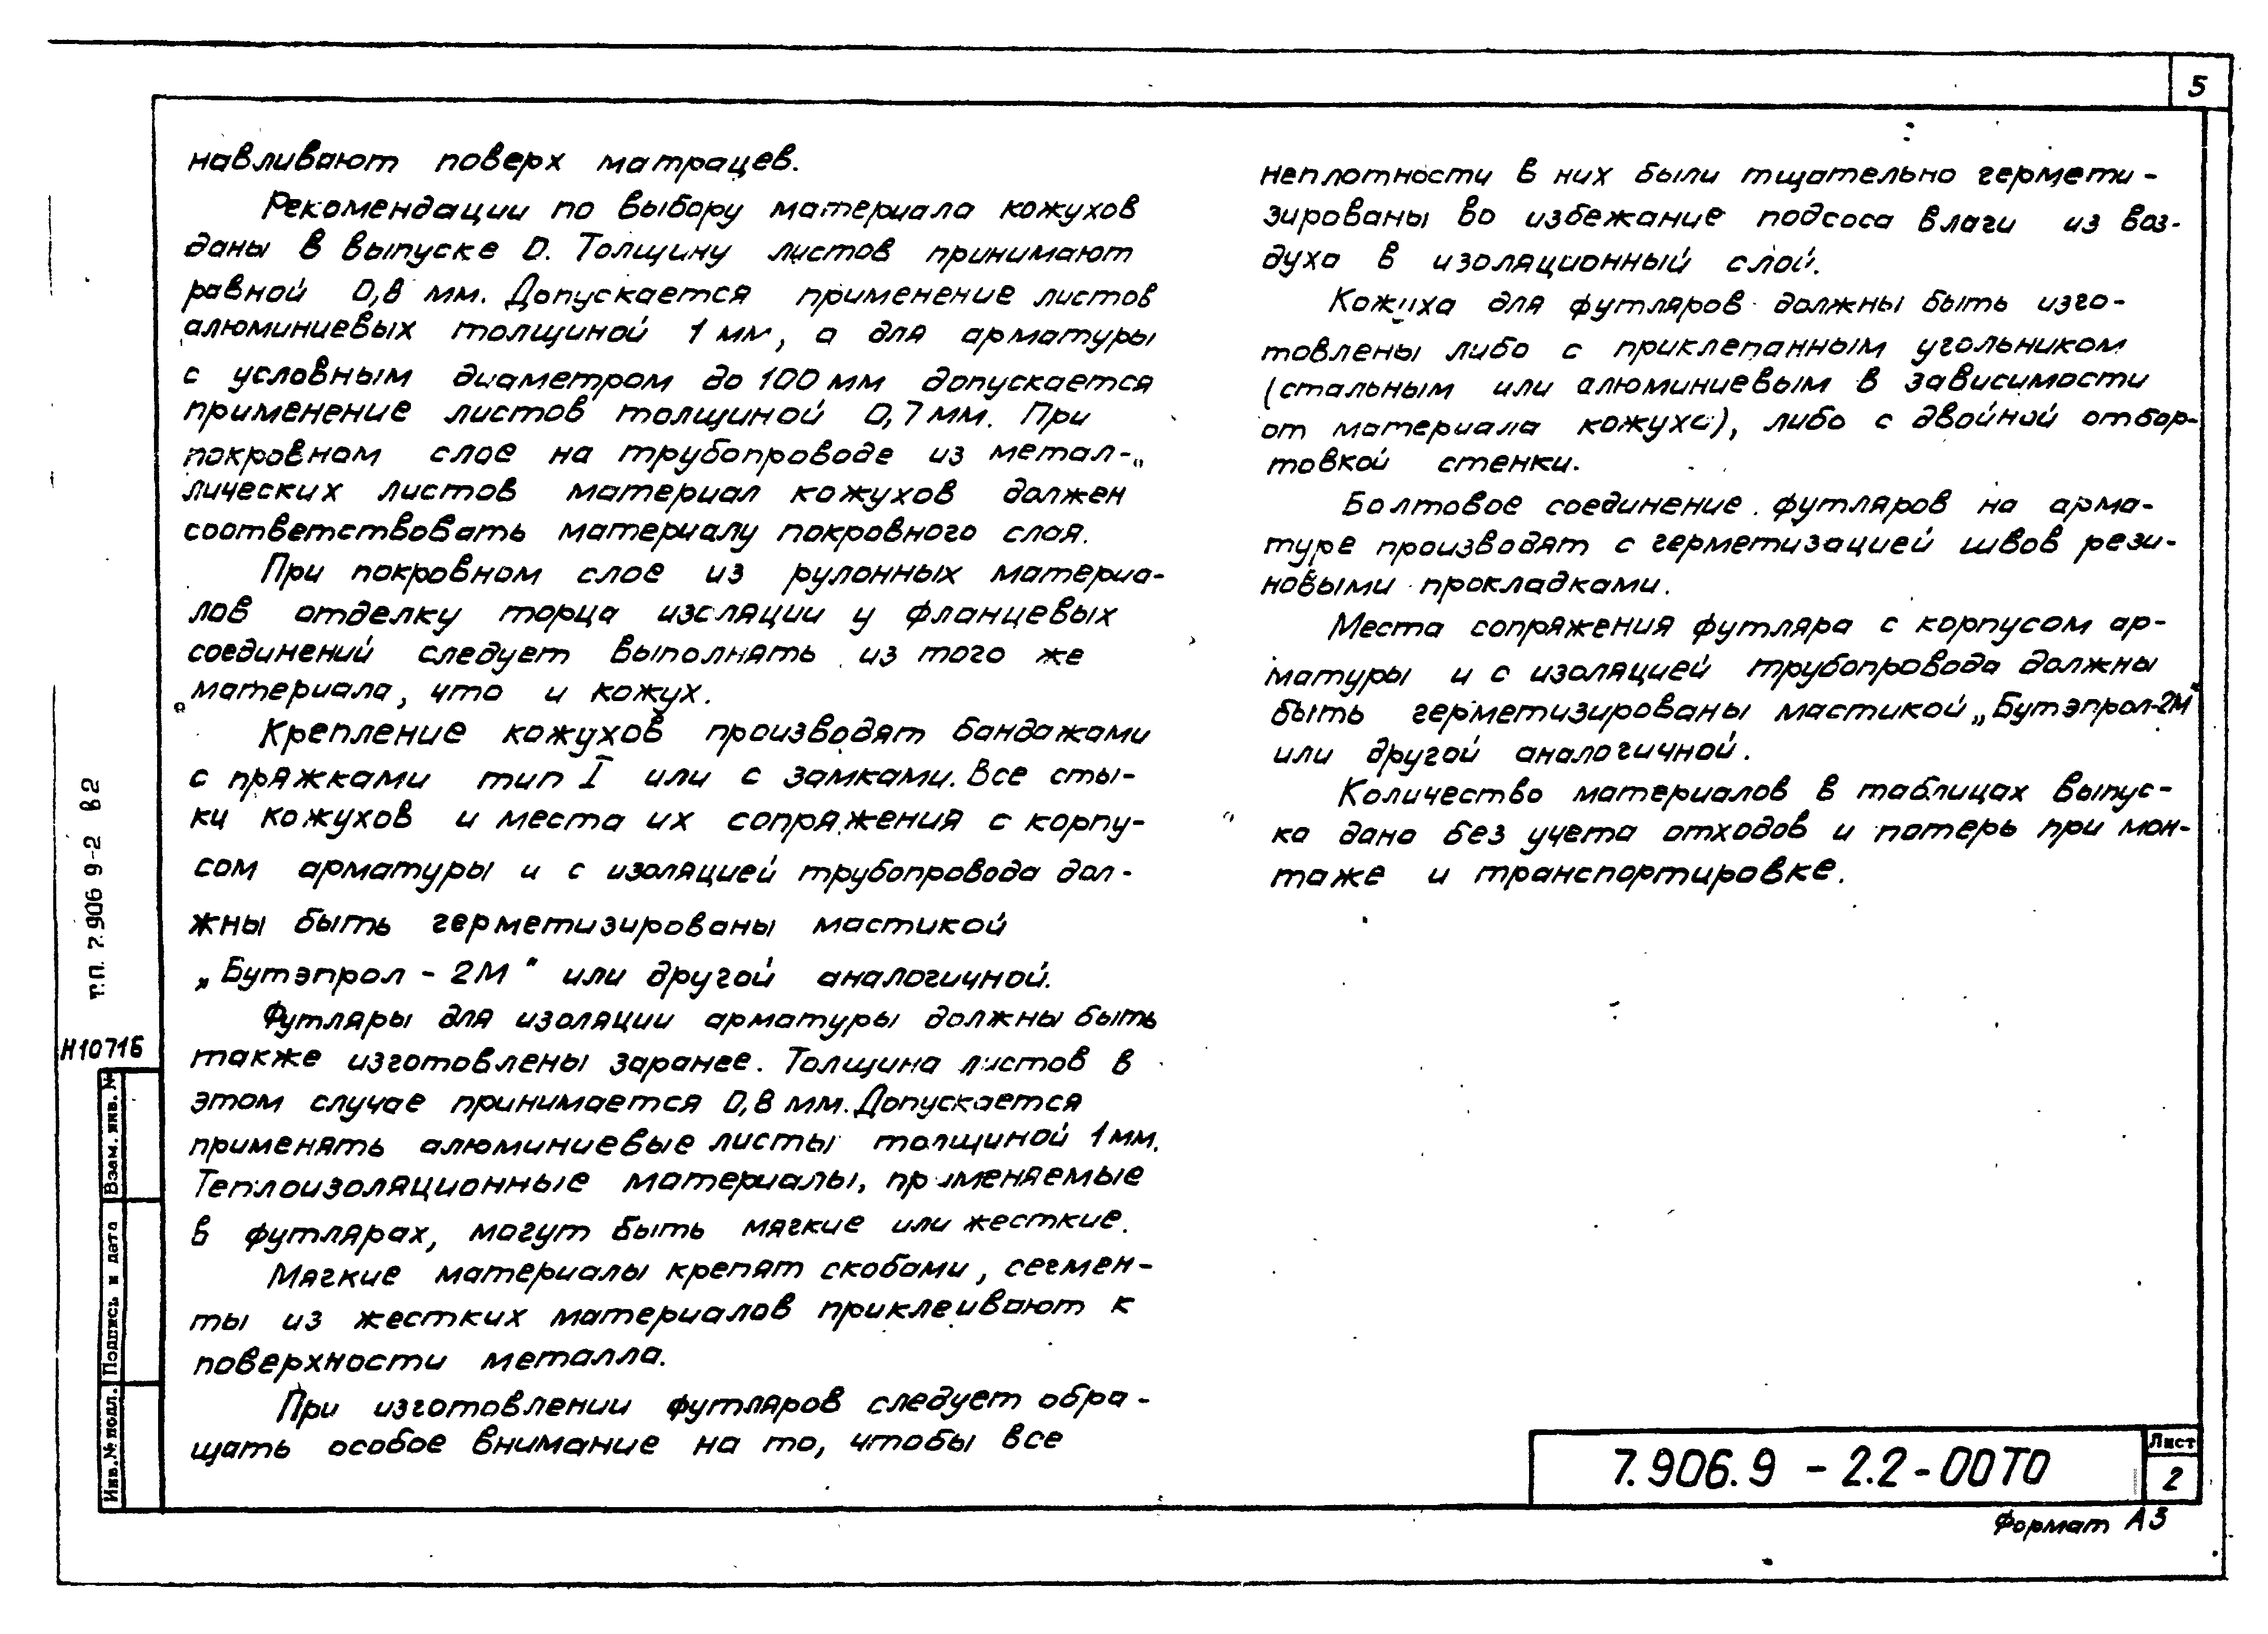 5
навливают поверх матрацев.
Рекомендации по выбору материала кожухов
даны в выпуске 0. Толщину листов принимают
равной 0,8 мм. Допускается применение листов
алюминиевых толщиной 1 мм, а для арматуры
с условным диаметром до 100 мм допускается
применение листов толщиной 0,7 мм. При
покровном слое на трубопроводе из метал-
лических листов материал кожухов должен
соответствовать материалу покровного слоя.
При покровном слое из рулонных материа-
лов отделку торца изоляции у фланцевых
соединений следует выполнять из того же
материала, что и кожух.
Крепление кожухов производят бандажами
с пряжками тип I или с замками. Все сты-
ки кожухов и места их сопряжения с корпу-
сом арматуры и с изоляцией трубопровода дол-
жны быть герметизированы мастикой
„Бутэпрол - 2М" или другой аналогичной.
Футляры для изоляции арматуры должны быть
также изготовлены заранее. Толщина листов в
этом случае принимается 0,8 мм. Допускается
применять алюминиевые листы толщиной 1 мм.
Теплоизоляционные материалы, применяемые
в футлярах, могут быть мягкие или жесткие.
Мягкие материалы крепят скобами, сегмен-
ты из жестких материалов приклеивают к
поверхности металла.
При изготовлении футляров следует обра-
щать особое внимание на то, чтобы все
неплотности в них были тщательно гермети-
зированы во избежание подсоса влаги из воз-
духа в изоляционный слой.
Кожуха для футляров должны быть изго-
товлены либо с приклепанным угольником
(стальным или алюминиевым в зависимости
от материала кожуха), либо с двойной отбор-
товкой стенки.
Болтовое соединение футляров на арма-
туре производят с герметизацией швов рези-
новыми прокладками.
Места сопряжения футляра с корпусом ар-
матуры и с изоляцией трубопровода должны
быть герметизированы мастикой „Бутэпрол-2М"
или другой аналогичной.
Количество материалов в таблицах выпус-
ка дано без учета отходов и потерь при мон-
таже и транспортировке.
т.п. 7.906 9-2 в2
Н10716
Взам. инв. №
Подпись и дата
Инв.№ подл.
7.906.9 - 2.2-00ТО
Лист
2
Формат А3